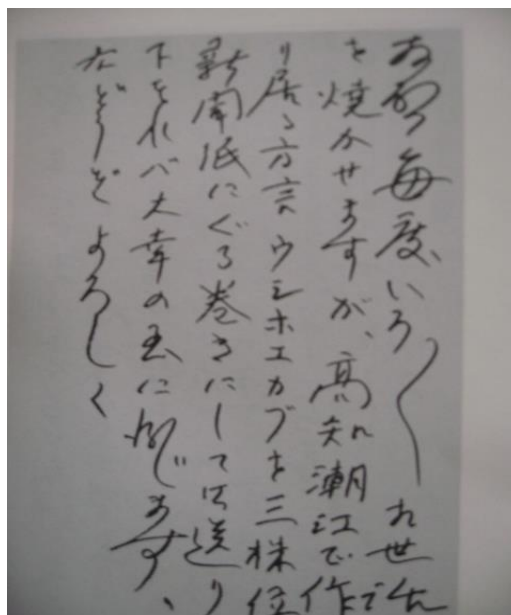 毎度いろ〱お世
を焼かせますが、高知潮江で作
り居る方言ウシホエカブを三株位
新聞紙にぐる巻きにして御送り
下されバ大幸の至に存じます、
右どうぞよろしく